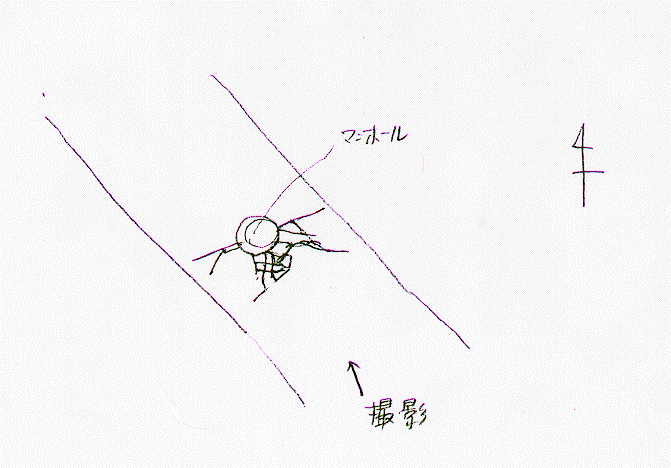 マンホール
撮影